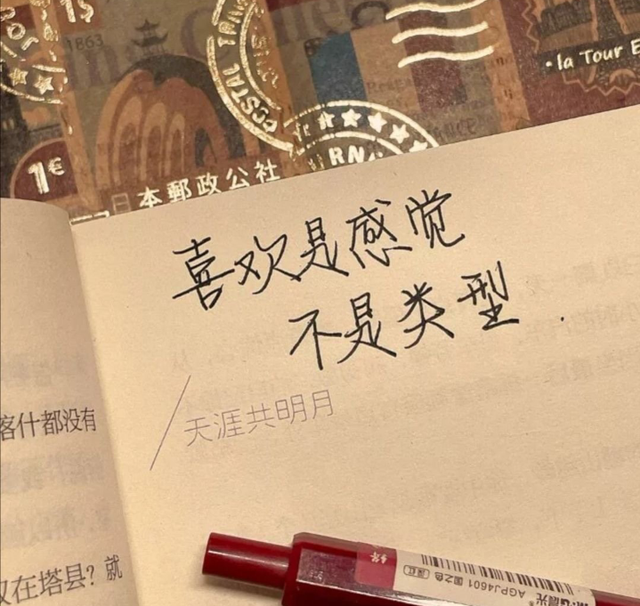 1$
1863
POSTAL
la Tour E
1€
日本郵政公社
喜欢是感觉
不是类型
天涯共明月
喀什都没有
在塔县？就
AGPJ4601 国之色